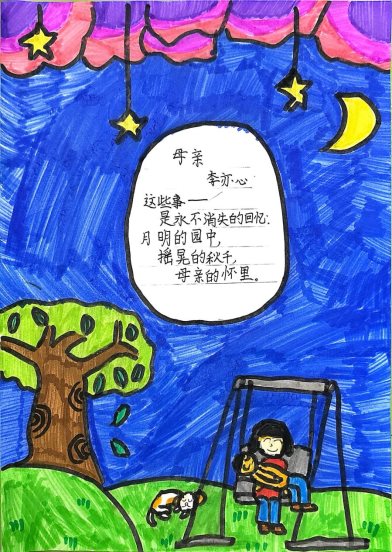 母亲
李亦心
这些事——
是永不消失的回忆:
月明的园中,
摇晃的秋千,
母亲的怀里。